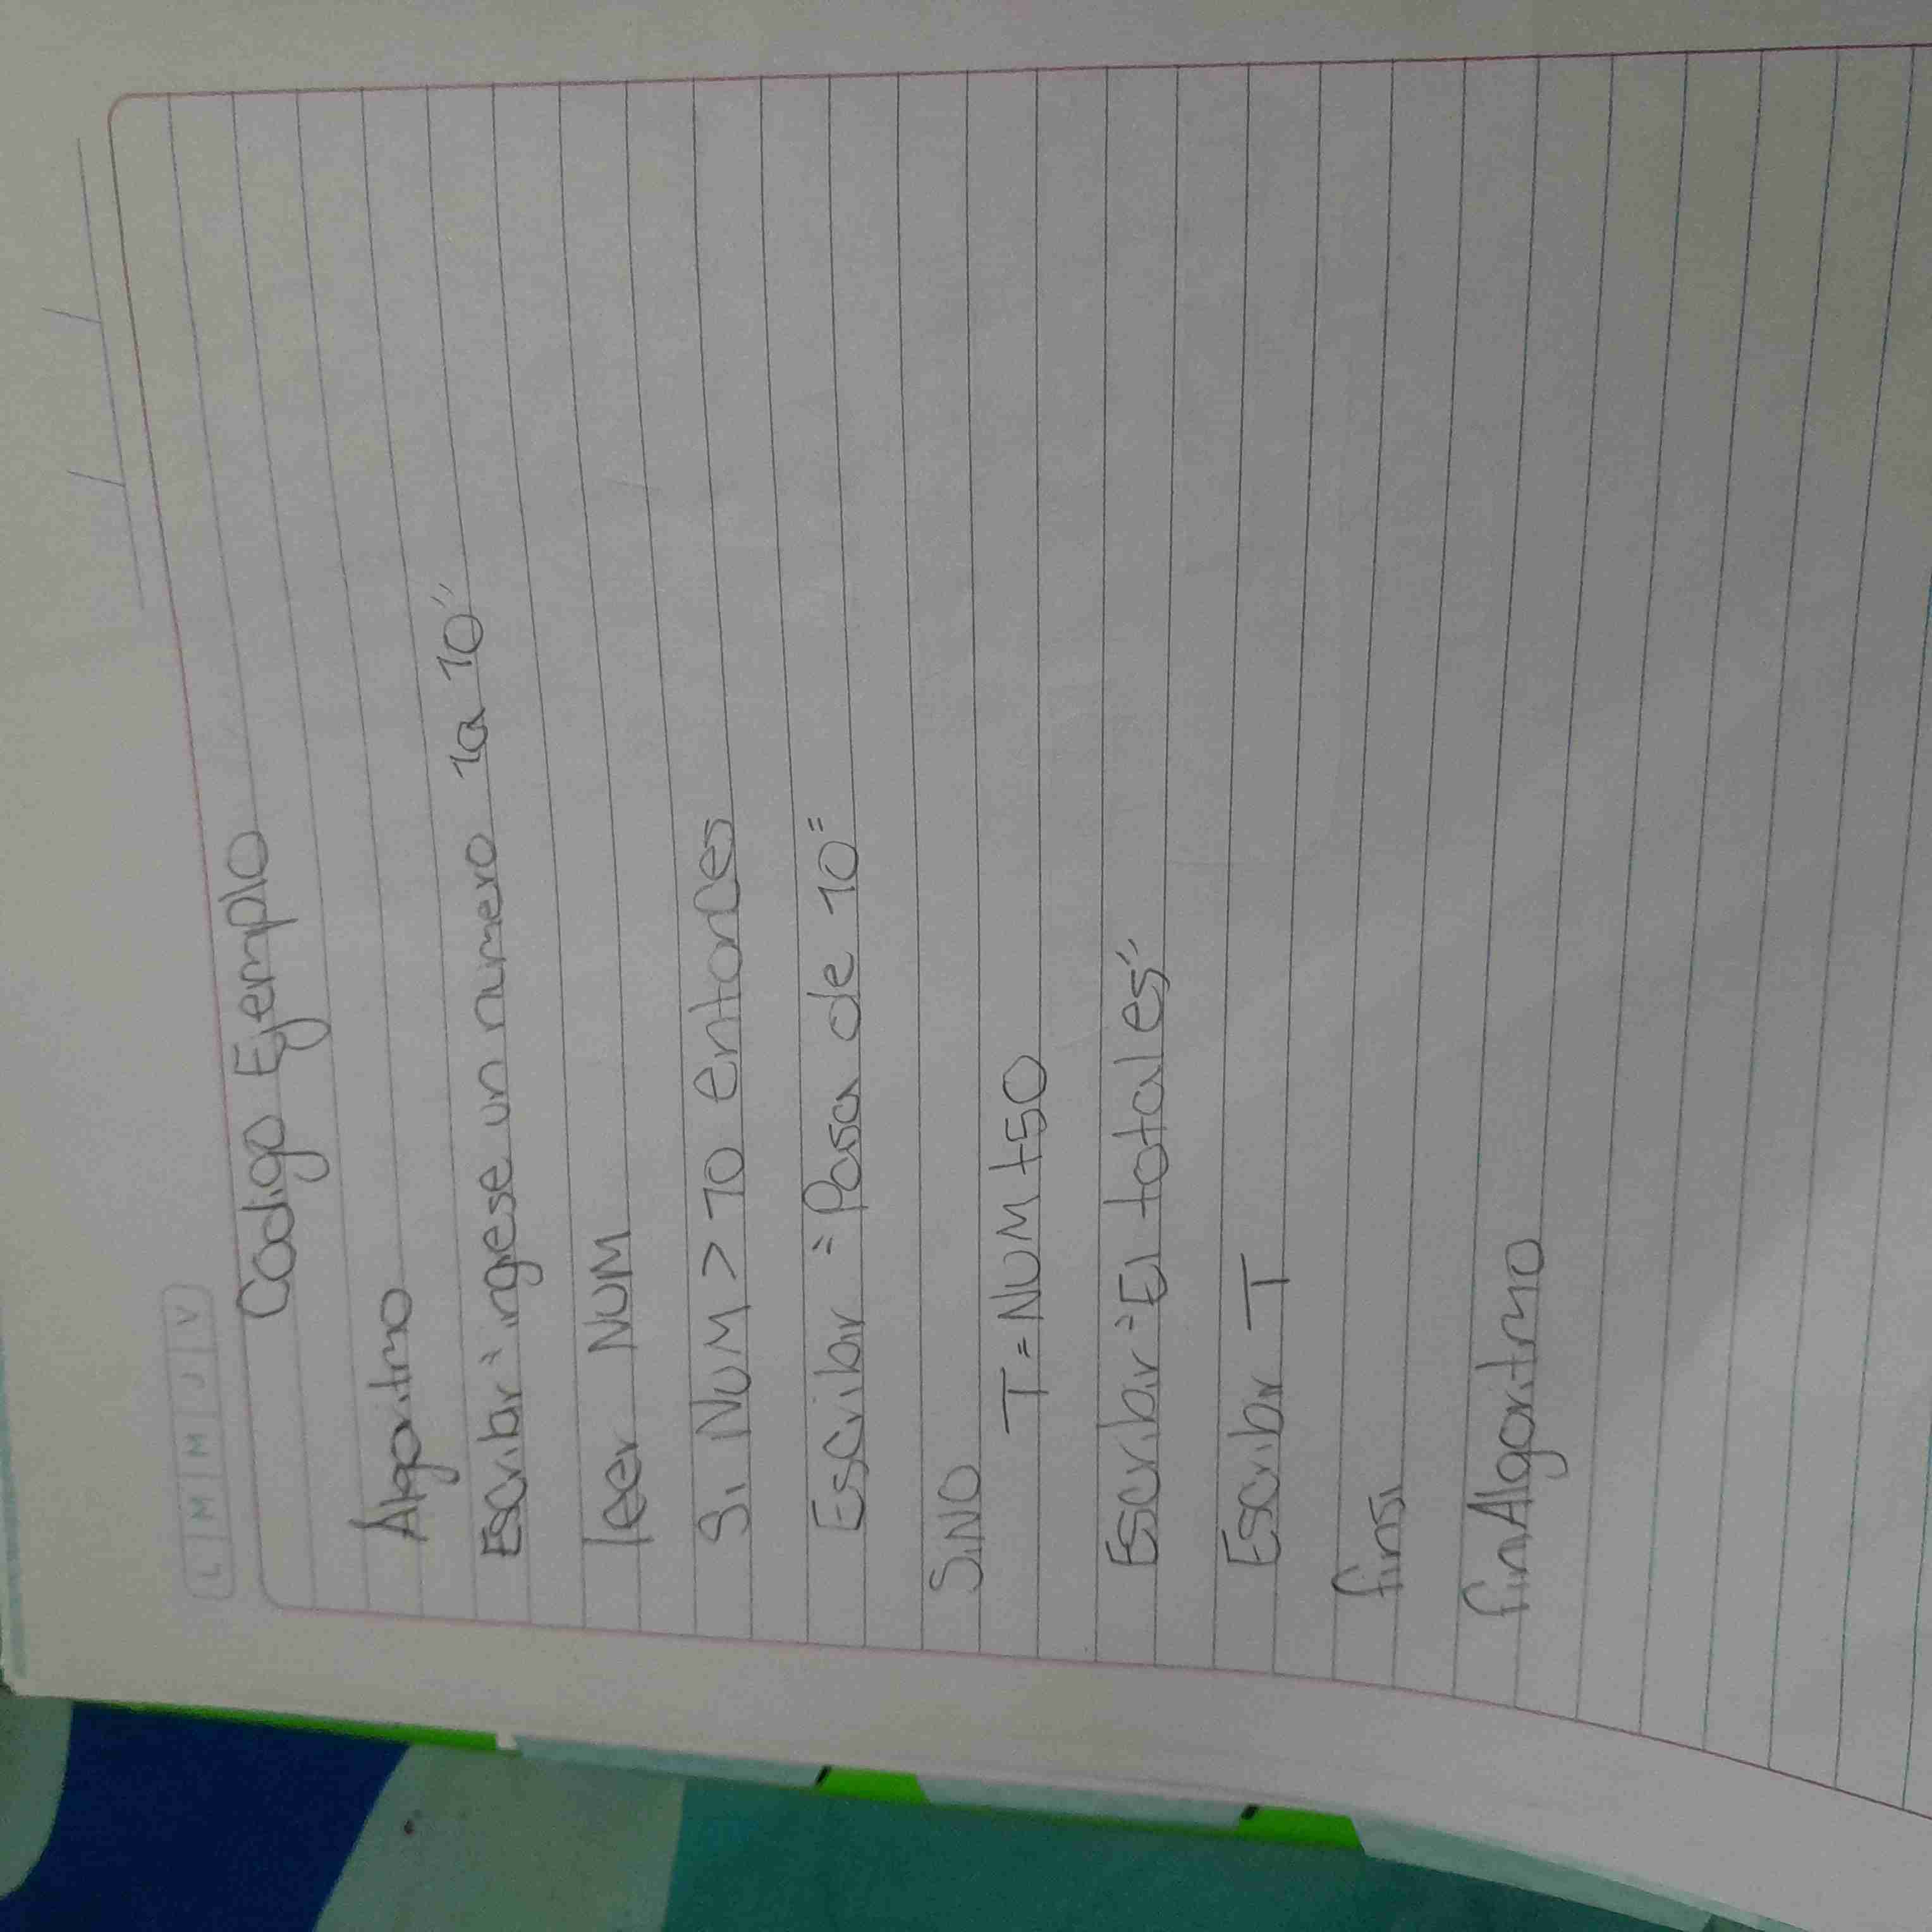 L M M J V
Codigo Ejemplo
Algoritmo
Escribir "ingrese un numero 1a 10"
leer NUM
Si NUM > 10 entonces
Escribir "Pasa de 10"
SiNO
T = NUM +50
Escribir "El total es"
Escribir T
finsi
finAlgoritmo